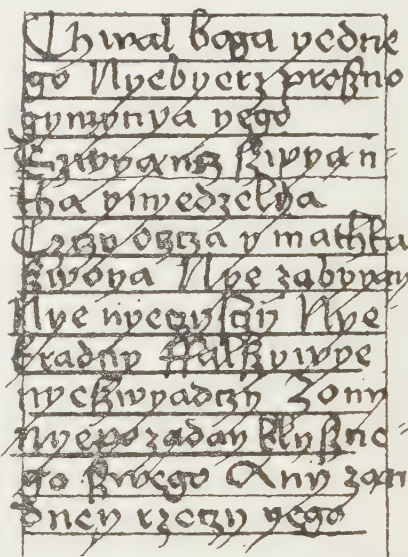 Chwal boga yedne
go Nyebyerz proszno
gymyenya yego
Czwyancz szwyan
tha ynyedzelya
Czczy oscza y mathka
szwoya Nye zabyyay
Nye nyeczysczy Nye
kradny Falszywye
nyeszwyadczy Zony
nyepozaday blyszne
go szwego Any zad
dney rzeczy yego